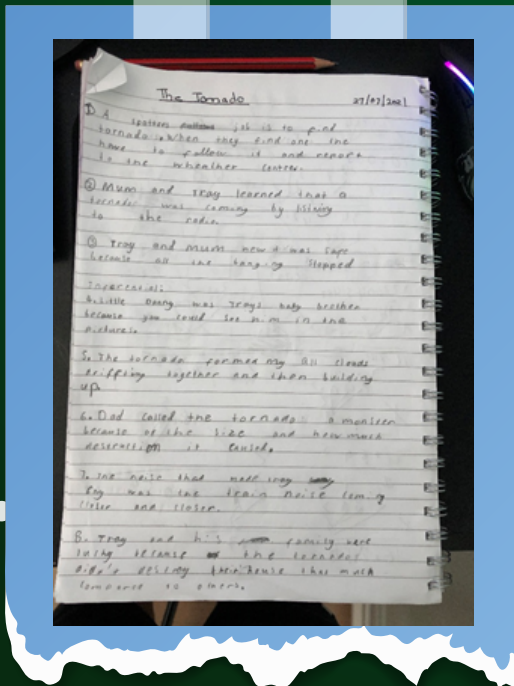 The Tornado 27/07/2021
1) A spotters job is to find
tornado. When they find one the
have to follow it and report
to the wheather center.
② Mum and Tray learned that a
tornado was coming by lisining
to the radio.
③ Tray and Mum new it was safe
because all the banging stopped
Inferential:
4. Little Danny was Trays baby brother
because you could see him in the
pictures.
5. The tornado formed by all clouds
driffting together and then building
up.
6. Dad called the tornado a monster
because of the size and how much
destruction it caused.
7. The noise that made Tray
was the train noise coming
closer and closer.
8. Tray and his family were
lucky because the tornado
didn't destroy their house that much
compared to others.